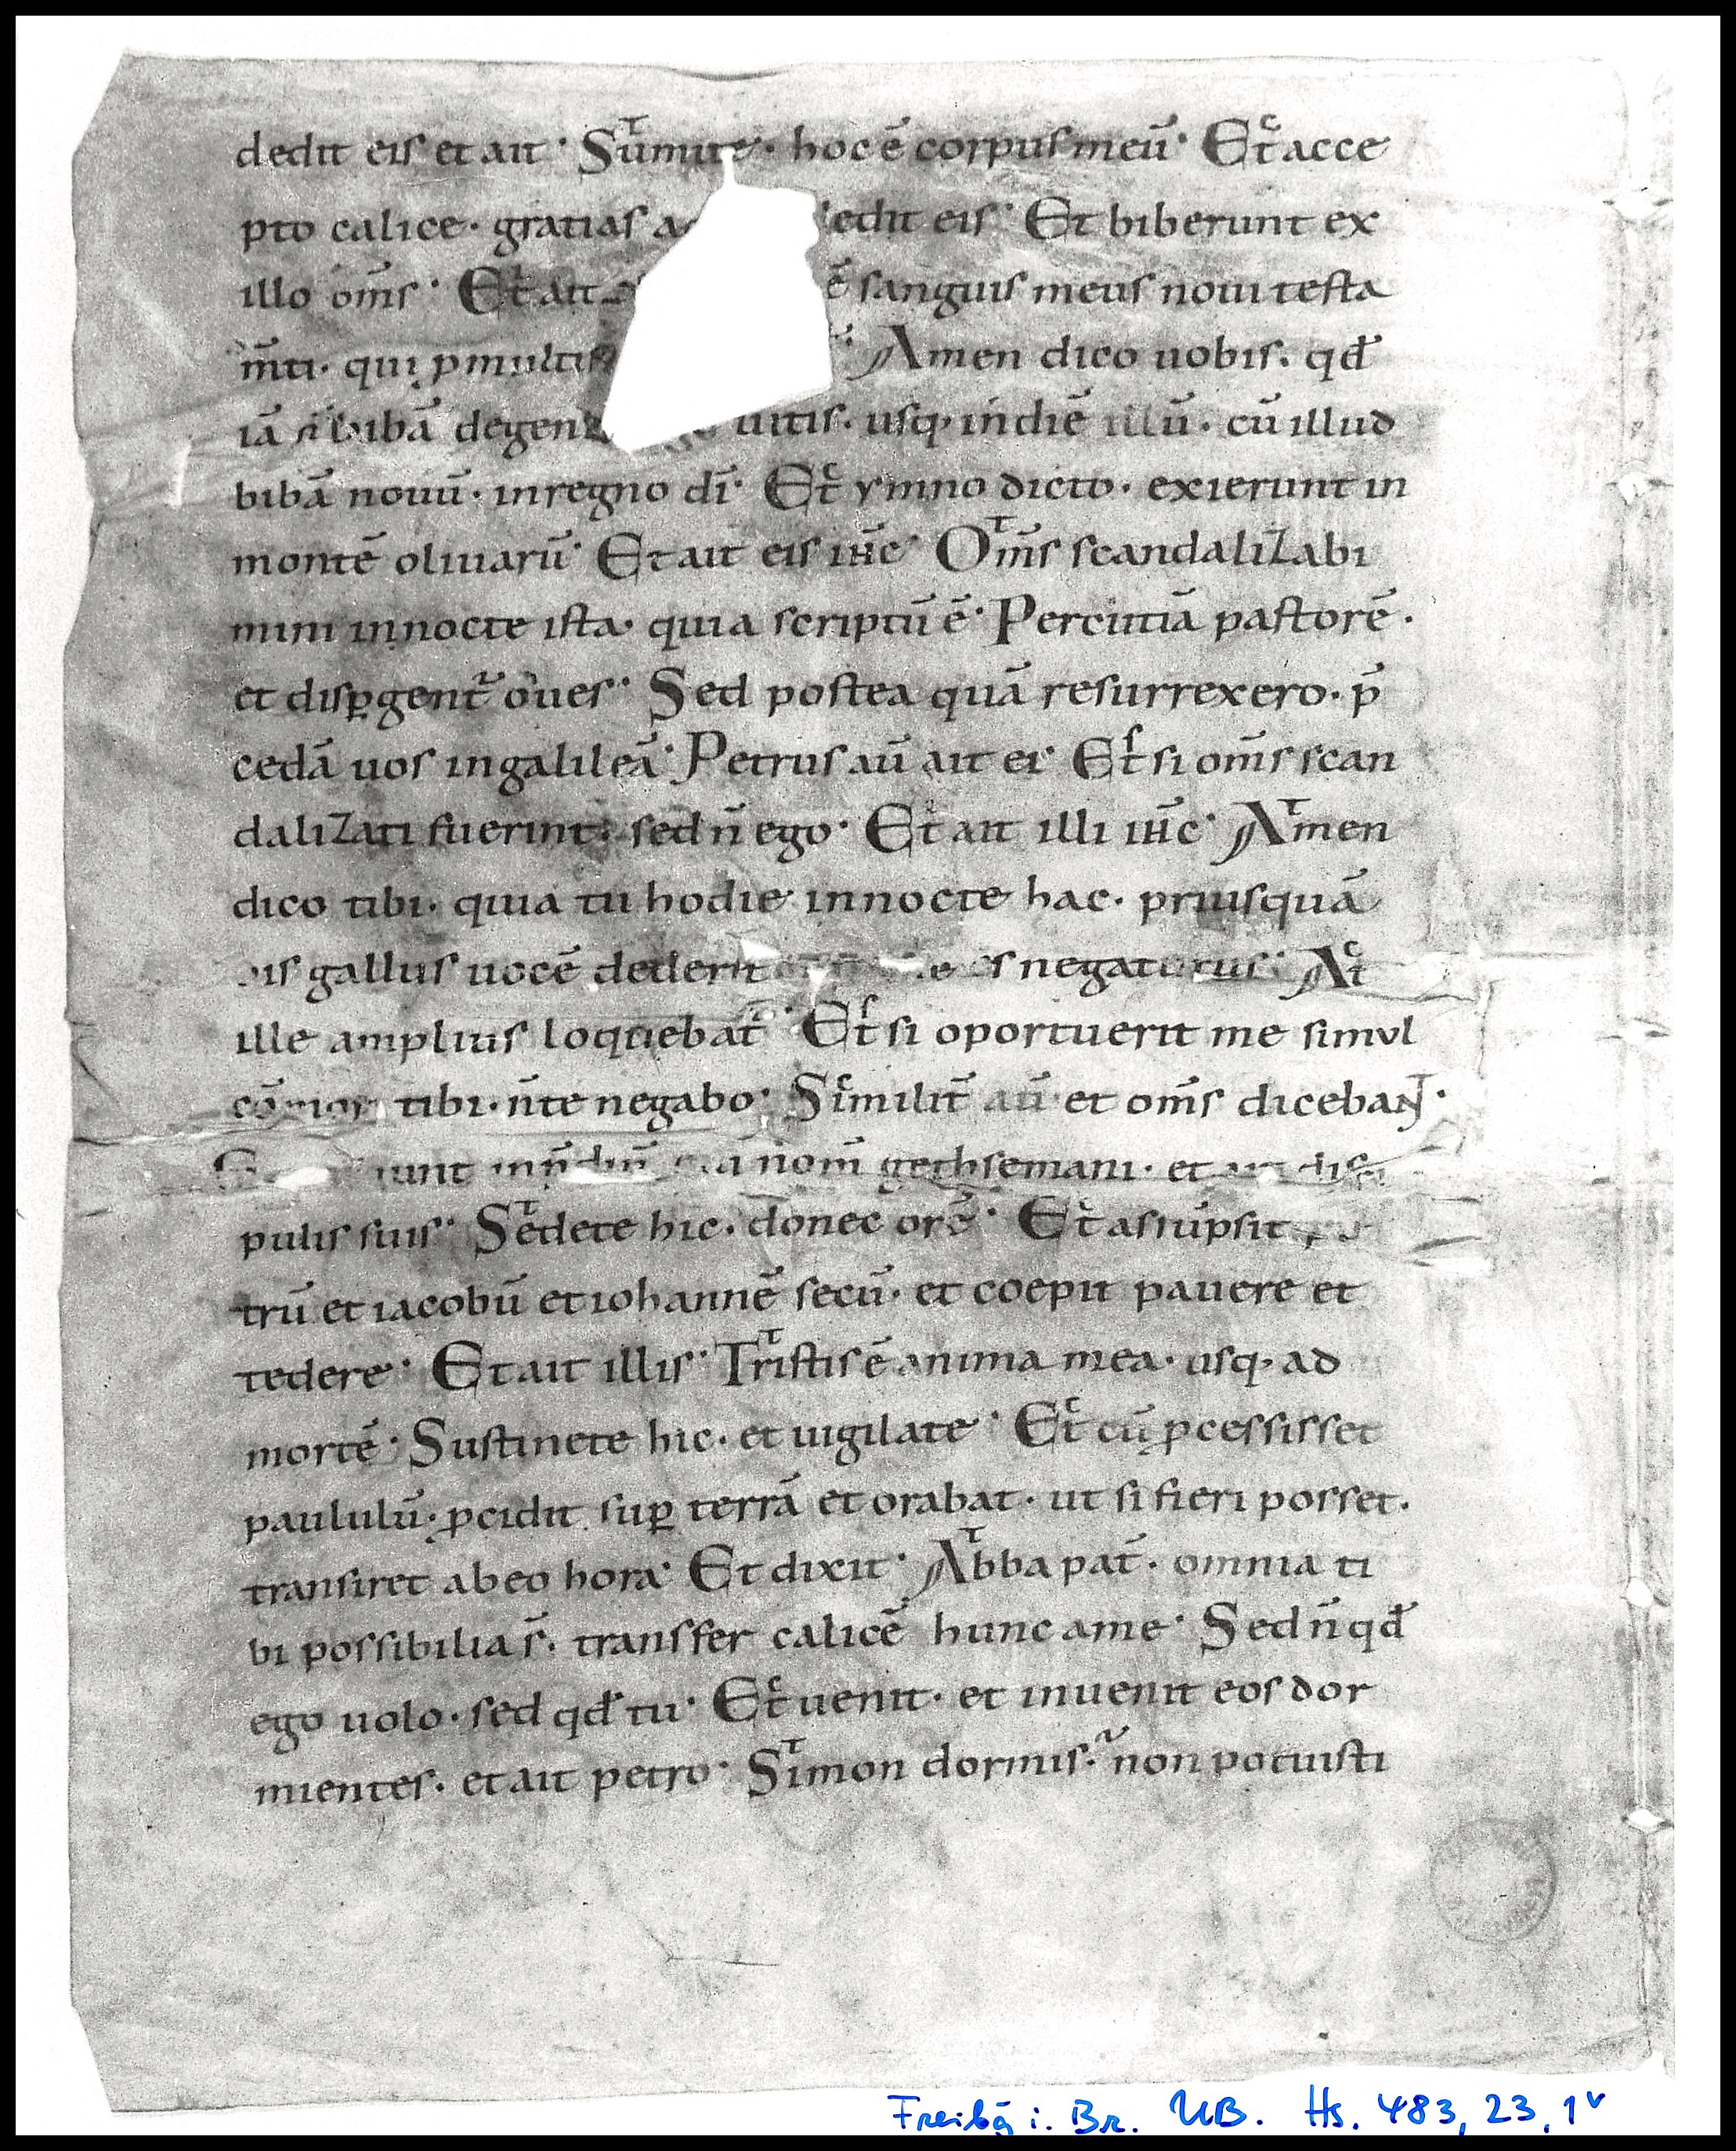 dedit eis et ait· Sumite· hoc ē corpus meū· Et acce
pto calice· gratias edit eis· Et biberunt ex
illo om̄s· Et ait ē sanguis meus noui testa
m̄ti· qui ꝓ multis Amen dico uobis· qđ
iā n̄ bibā de gen uitis· usq· in diē illū· cū illud
bibā nouū· in regno dī· Et ymno dicto· exierunt in
montē oliuarū· Et ait eis ih̄c· Om̄s scandalizabi
mini in nocte ista· quia scriptū ē· Percutiā pastorē·
et disꝑgent̄ oues· Sed postea quā resurrexero· p̄
cedā uos in galileā· Petrus aū ait ei· Et si om̄s scan
dalizati fuerint· sed n̄ ego· Et ait illi ih̄c· Amen
dico tibi· quia tu hodie in nocte hac· priusquā
gallus uocē dederit es negaturus· At
ille amplius loquebat̄· Et si oportuerit me simul
tibi· n̄ te negabo· Similit̄ aū et om̄s dicebant·
in p̄diū nom̄ gethsemani· et disci
pulis suis· Sedete hic· donec orē· Et assūpsit
trū et iacobū et iohannē secū· et coepit pauere et
tedere· Et ait illis· Tristis ē anima mea· usq· ad
mortē· Sustinete hic· et uigilate· Et cū ꝓcessisset
paululū· ꝓcidit suꝑ terrā et orabat· ut si fieri posset·
transiret ab eo hora· Et dixit· Abba pat̄· omnia ti
bi possibilia s̄· transfer calicē hunc a me· Sed n̄ qđ
ego uolo· sed qđ tu· Et uenit· et inuenit eos dor
mientes· et ait petro· Simon dormis· non potuisti
Freibg i. Br. UB. Hs. 483, 23, 1v